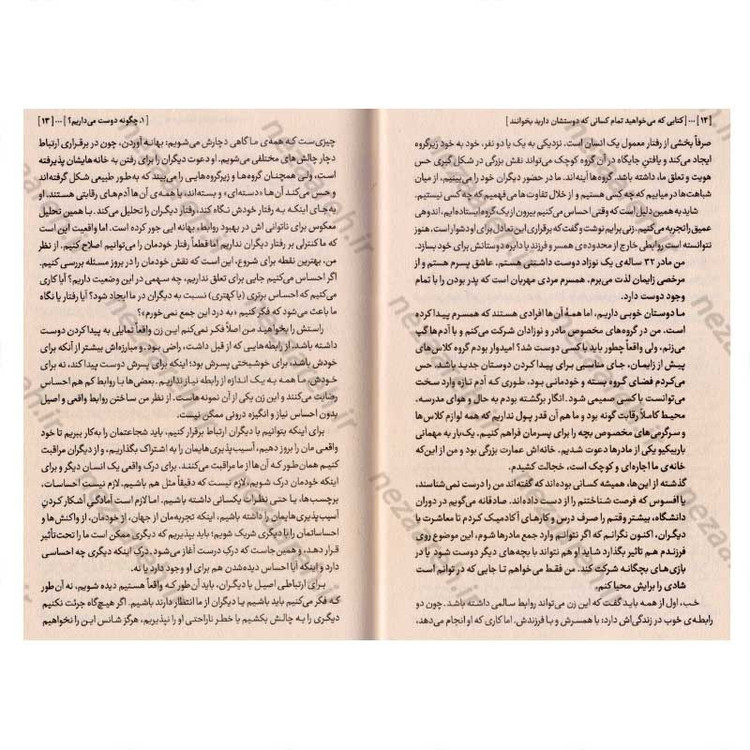 [۱۲] ... [کتابی که می‌خواهید تمام کسانی که دوستشان دارید بخوانند]
صرفاً بخشی از رفتار معمول یک انسان است. نزدیکی به یک یا دو نفر، خود به خود زیرگروه
ایجاد می‌کند و یافتن جایگاه در آن گروه کوچک می‌تواند نقش بزرگی در شکل گیری حس
هویت و تعلق ما، داشته باشد. گروه‌ها آینه‌اند. ما در حضور دیگران خود را می‌بینیم. از
شباهت‌ها درمیابیم که چه کسی هستیم و از خلال تفاوت‌ها می‌فهمیم که چه کسی نیستیم.
شاید به همین دلیل است که وقتی احساس می‌کنیم بیرون از یک گروه ایستاده‌ایم، اندوهی
عمیق را تجربه می‌کنیم. زنی برایم نوشت و گفت که برقراری این تعادل برای او دشوار است، هنوز
نتوانسته است روابطی خارج از محدوده‌ی همسر و فرزند یا دایره دوستانش برای خود بسازد.
من مادر ۳۲ ساله‌ی یک نوزاد دوست داشتنی هستم. عاشق پسرم هستم و از
مرخصی زایمان لذت می‌برم. همسرم مردی مهربان است که پدر بودن را با تمام
وجود دوست دارد.
ما دوستان خوبی داریم، اما همهٔ آن‌ها افرادی هستند که همسرم پیدا کرده
است. من در گروه‌های مخصوص مادر و نوزادان شرکت می‌کنم و با آدم‌ها گپ
می‌زنم، ولی واقعاً چطور باید با کسی دوست شد؟ امیدوار بودم گروه کلاس‌های
پیش از زایمان، جای مناسبی برای پیدا کردن دوستان جدید باشد،
می‌کردم فضای گروه، بسته و خودمانی بود، طوری که آدم تازه وارد سخت
می‌توانست با کسی صمیمی شود. انگار برگشته بودم به حال و هوای مدرسه.
محیط کاملاً رقابت گونه بود و ما هم آن قدر پول نداریم که همه لوازم کلاس‌ها
و سرگرمی‌های مخصوص بچه را برای پسرمان فراهم کنیم. یک‌بار به مهمانی
باربیکیو یکی از مادرها دعوت شدیم. خانه‌اش عمارت بزرگی بود و من از
خانه‌ی ما اجاره‌ای و کوچک است، خجالت کشیدم.
گذشته از این‌ها، همیشه کسانی بوده‌اند که گفته‌اند من را درست نمی‌شناسند،
یا افسوس که فرصت شناختنم را از دست داده‌اند. صادقانه می‌گویم در دوران
دانشگاه، بیشتر وقتم را صرف درس و کارهای آکادمیک کردم تا معاشرت با
دیگران، اکنون نگرانم که اگر نتوانم وارد جمع مادرها شوم، این موضوع روی
فرزندم هم تاثیر بگذارد شاید او هم نتواند با بچه‌های دیگر دوست شود یا در
بازی‌های بچگانه شرکت کند. من فقط می‌خواهم تا جایی که در توانم است
شادی را برایش محیا کنم.
خب، اول از همه باید گفت که این زن می‌تواند روابط سالمی داشته باشد. چون دو
رابطه‌ی خوب در زندگی‌اش دارد؛ با همسرش و با فرزندش. اما کاری که او انجام می‌دهد،
[۱. چگونه دوست می‌داریم؟] ... [۱۳]
چیزی‌ست که همه‌ی ما گاهی دچارش می‌شویم؛ بهانه آوردن، چون در برقراری ارتباط
دچار چالش های مختلفی می‌شویم. او دعوت دیگران را برای رفتن به خانه‌هایشان پذیرفته
است، ولی همچنان گروه‌ها و زیرگروه‌هایی را می‌بیند که به‌طور طبیعی شکل گرفته‌اند
و حس می‌کند آن‌ها «دسته‌ای» و بسته‌اند، یا همه‌ی آن‌ها آدم‌های رقابتی هستند. او
به جای اینکه به رفتار خودش نگاه کند، رفتار دیگران را تحلیل می‌کند. با همین تحلیل
معکوس برای ناتوانی اش در بهبود روابط، بهانه ایی جور کرده است. اما واقعیت این است
که ما کنترلی بر رفتار دیگران نداریم اما قطعاً رفتار خودمان را می‌توانیم اصلاح کنیم. از نظر
من، بهترین نقطه برای شروع، این است که نقش خودمان را در بروز مسئله بررسی کنیم.
اگر احساس می‌کنیم جایی برای تعلق نداریم، چه سهمی در این وضعیت داریم؟ آیا کاری
می‌کنیم که احساس برتری (یا کهتری) نسبت به دیگران در ما ایجاد شود؟ آیا رفتار یا نگاه
ما باعث می‌شود که فکر کنیم «به درد این جمع نمی‌خورم»؟
راستش را بخواهید من اصلاً فکر نمی‌کنم این زن واقعاً تمایلی به پیدا کردن دوست
داشته باشد، از رابطه‌هایی که از قبل داشت، راضی بود. و مبارزه‌اش بیشتر از آنکه برای
خودش باشد، برای خوشبختی پسرش بود؛ اینکه برای پسرش دوست پیدا کند، نه برای
خودش. ما همه به یک اندازه از رابطه نیاز نداریم. بعضی‌ها با روابط کم هم احساس
رضایت می‌کنند و این زن یکی از آن نمونه‌هاست. از نظر من ساختن روابط واقعی و اصیل
بدون احساس نیاز و انگیزه درونی ممکن نیست.
برای اینکه بتوانیم با دیگران ارتباط برقرار کنیم، باید شجاعتمان را به‌کار ببریم تا خود
واقعی مان را بروز دهیم، آسیب‌پذیری‌هایمان را به اشتراک بگذاریم، و از دیگران مراقبت
کنیم همان طور که آن‌ها از ما مراقبت می‌کنند. برای درک واقعی یک انسان دیگر و برای
اینکه خودمان درک شویم، لازم نیست که دقیقاً مثل هم باشیم. لازم نیست احساسات،
برچسب‌ها، یا حتی نظرات یکسانی داشته باشیم. اما لازم است آمادگی آشکار کردنِ
آسیب‌پذیری‌هایمان را داشته باشیم، اینکه تجربه‌مان از جهان، از خودمان، از واکنش‌ها و
احساساتمان را با دیگری شریک شویم؛ باید بپذیریم که دیگری ممکن است ما را تحت‌تأثیر
قرار دهد، و همین‌جاست که درک درست آغاز می‌شود. درک اینکه دیگری چه احساسی
دارد و اینکه آیا احساس دیده‌شدن هم برای او وجود دارد یا نه.
برای ارتباطی اصیل با دیگران، باید آن‌طور که واقعاً هستیم دیده شویم، نه آن‌طور
که فکر می‌کنیم باید باشیم یا دیگران از ما انتظار دارند باشیم. اگر هیچ‌گاه جرئت نکنیم
دیگری را به چالش بکشیم یا خطر ناراحتی او را نپذیریم، هرگز شانس این را نخواهیم